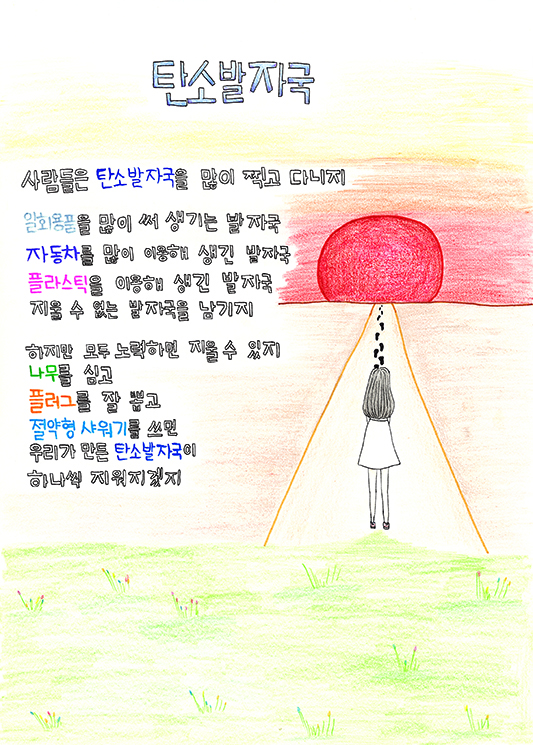 탄소발자국
사람들은 탄소발자국을 많이 찍고 다니지
일회용품을 많이 써 생기는 발자국
자동차를 많이 이용해 생긴 발자국
플라스틱을 이용해 생긴 발자국
지울 수 없는 발자국을 남기지
하지만 모두 노력하면 지울 수 있지
나무를 심고
플러그를 잘 뽑고
절약형 샤워기를 쓰면
우리가 만든 탄소발자국이
하나씩 지워지겠지